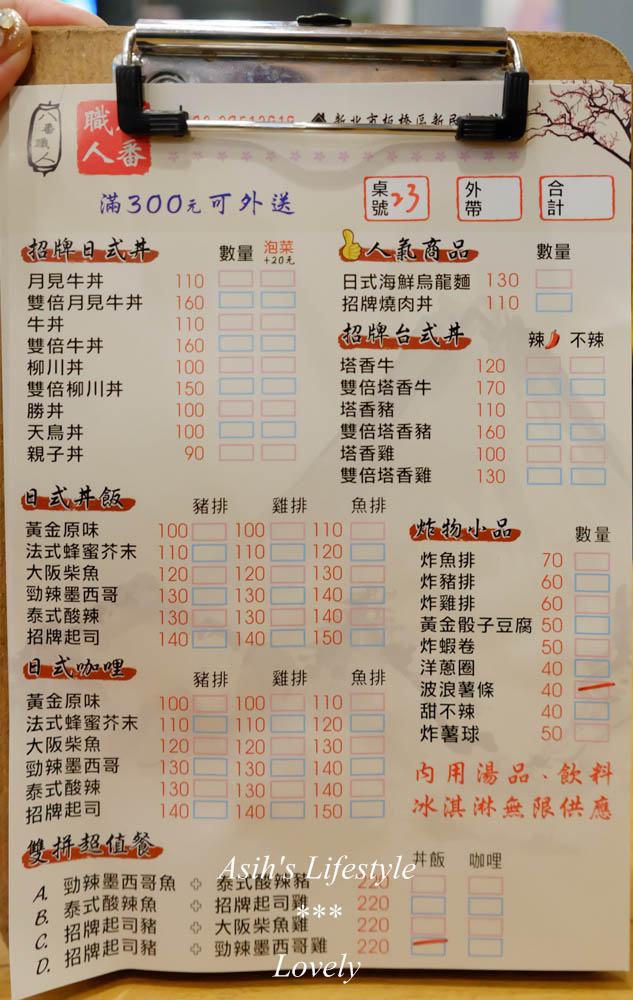 八番職人
職人 八番
新北市板橋區新民
滿300元可外送
桌號 23
外帶
合計
招牌日式丼 數量 泡菜+20元
月見牛丼 110
雙倍月見牛丼 160
牛丼 110
雙倍牛丼 160
柳川丼 100
雙倍柳川丼 150
勝丼 100
天鳥丼 100
親子丼 90
人氣商品 數量
日式海鮮烏龍麵 130
招牌燒肉丼 110
招牌台式丼 辣 不辣
塔香牛 120
雙倍塔香牛 170
塔香豬 110
雙倍塔香豬 160
塔香雞 100
雙倍塔香雞 130
日式丼飯 豬排 雞排 魚排
黃金原味 100 100 110
法式蜂蜜芥末 110 110 120
大阪柴魚 120 120 130
勁辣墨西哥 130 130 140
泰式酸辣 130 130 140
招牌起司 140 140 150
日式咖哩 豬排 雞排 魚排
黃金原味 100 100 110
法式蜂蜜芥末 110 110 120
大阪柴魚 120 120 130
勁辣墨西哥 130 130 140
泰式酸辣 130 130 140
招牌起司 140 140 150
炸物小品 數量
炸魚排 70
炸豬排 60
炸雞排 60
黃金骰子豆腐 50
炸蝦卷 50
洋蔥圈 40
波浪薯條 40
甜不辣 40
炸薯球 50
內用湯品、飲料
冰淇淋無限供應
雙拼超值餐 丼飯 咖哩
A. 勁辣墨西哥魚 + 泰式酸辣豬 220
B. 泰式酸辣魚 + 招牌起司雞 220
C. 招牌起司豬 + 大阪柴魚雞 220
D. 招牌起司豬 + 勁辣墨西哥雞 220
Asih's Lifestyle
***
Lovely